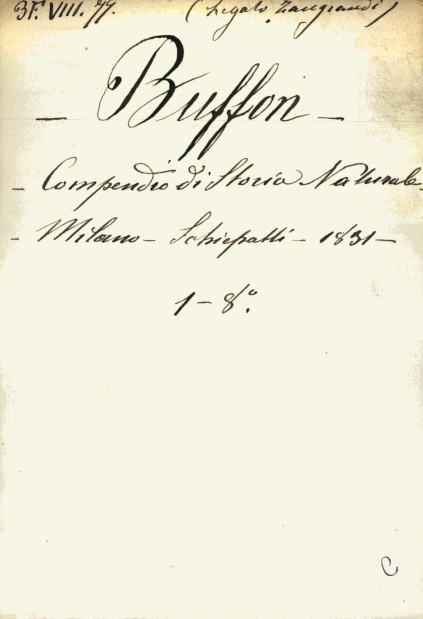 3F. VIII. 77. (Legato Zangrandi)
– Buffon –
– Compendio di Storia Naturale –
– Milano – Schiepatti – 1831 –
1 – 8°.
C